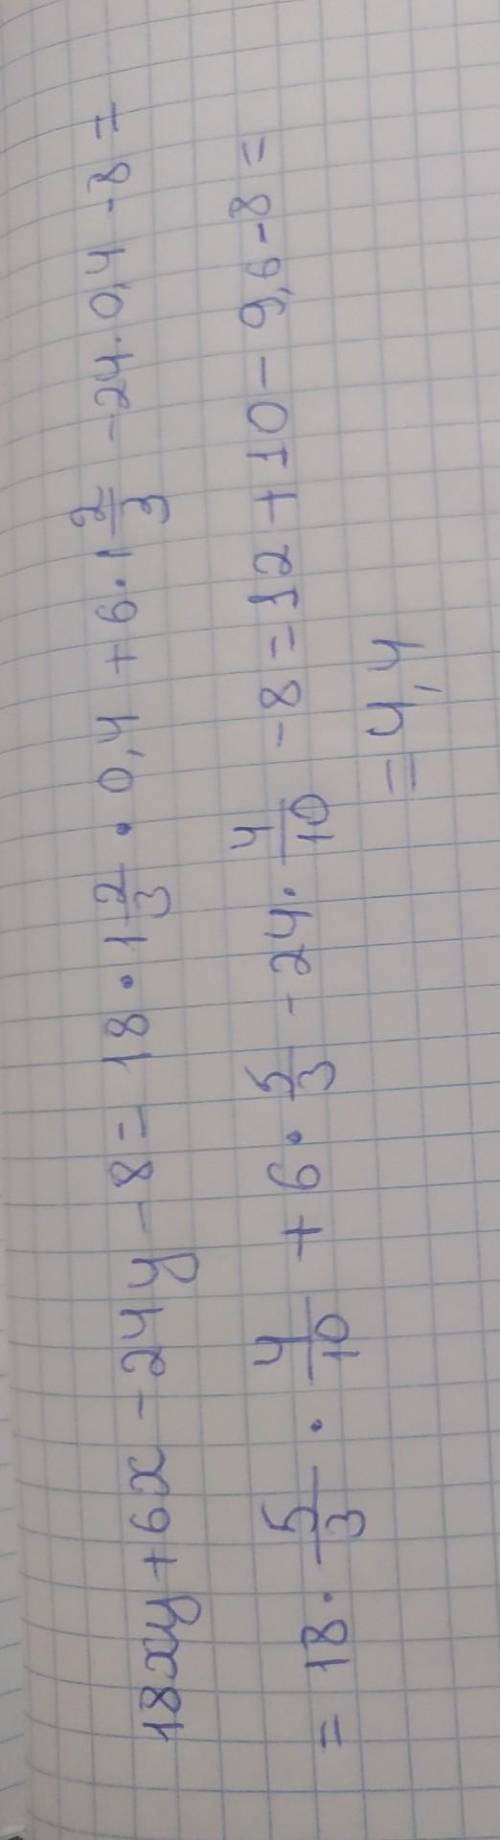 18xy + 6x - 24y - 8 = 18 · 1 2/3 · 0,4 + 6 · 1 2/3 - 24 · 0,4 - 8 =
= 18 · 5/3 · 4/10 + 6 · 5/3 - 24 · 4/10 - 8 = 12 + 10 - 9,6 - 8 =
= 4,4